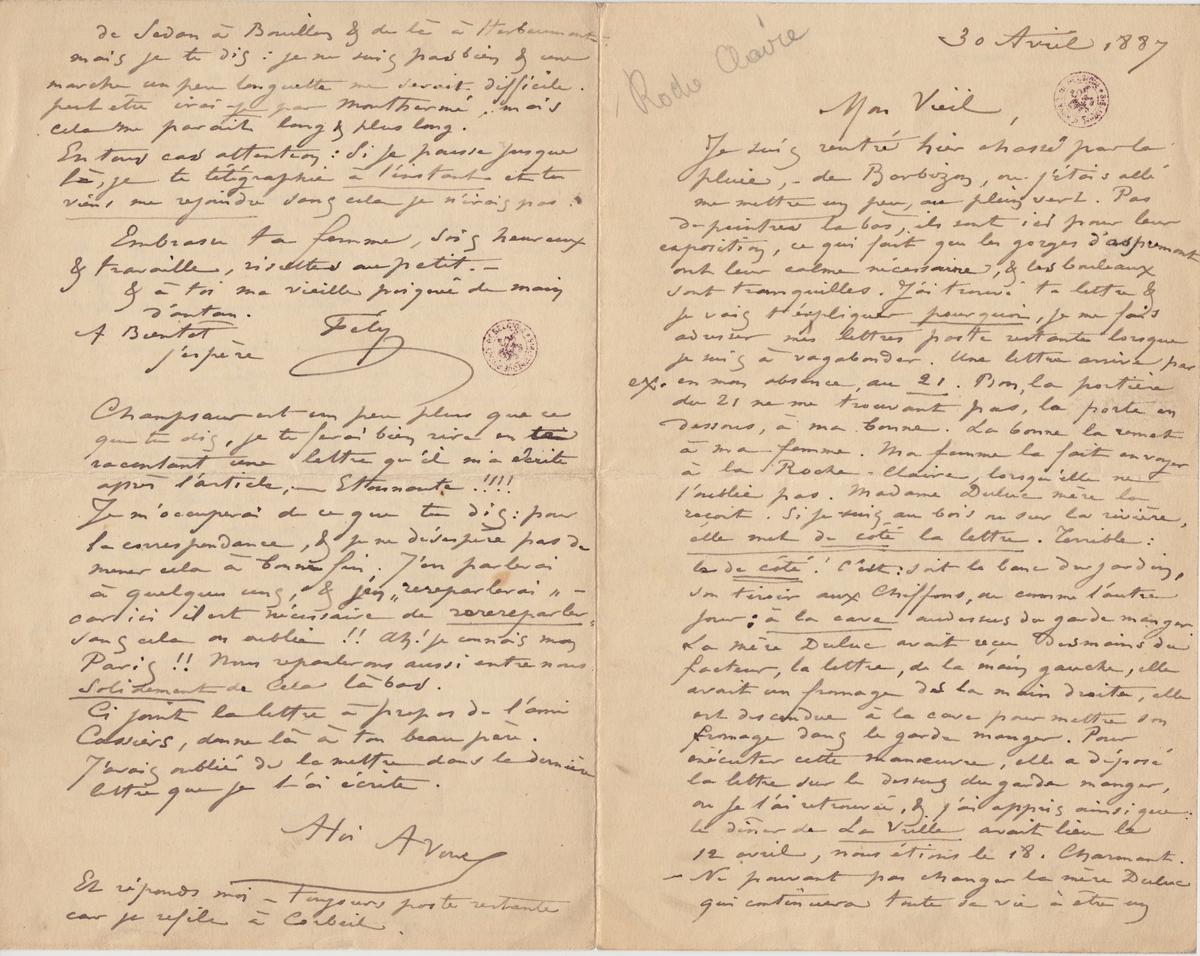 30 Avril 1887
Roche Claire
Mon Vieil,
Je suis rentré hier chassé par la
pluie, - de Barbizon, ou j'étais allé
me mettre un peu, au plein vert. Pas
de peintres la bas, ils sont ici pour leur
exposition, ce qui fait que les gorges d'aspremont
ont leur calme nécessaire, & les bouleaux
sont tranquilles. J'ai trouvé ta lettre &
je vais t'expliquer pourquoi, je me fais
adresser mes lettres poste restante lorsque
je suis à vagabonder. Une lettre arrive, par
ex. en mon absence, au 21. Bon, la portière
du 21 ne me trouvant pas, la porte en
dessous, à ma bonne. La bonne la remet
à ma femme. Ma femme la fait envoyer
à la Roche-Claire, lorsqu'elle ne
l'oublie pas. Madame Duluc mère la
reçoit. Si je suis au bois ou sur la rivière,
elle met de côté la lettre. Terrible :
le de côté ! C'est : soit le banc du jardin,
son tiroir aux chiffons, ou comme l'autre
jour : à la cave au dessus du garde manger.
La mère Duluc avait reçu des mains du
facteur, la lettre, de la main gauche, elle
avait un fromage de la main droite, elle
est descendue à la cave pour mettre son
fromage dans le garde manger. Pour
exécuter cette manœuvre, elle a déposé
la lettre sur le dessus du garde manger,
ou je l'ai retrouvée, & j'ai appris ainsi que :
le dîner de La Vrille avait lieu le
12 avril, nous étions le 18. Charmant.
- Ne pouvant pas changer la mère Duluc
qui continuera toute sa vie à être un
de Sedan à Bouillon & de là à Herbeumont
mais je te dis : je ne suis pas bien & une
marche un peu longuette me serait difficile.
peut être irai-je par Monthermé, mais
cela me parait long & plus long.
En tous cas attention : Si je pousse jusque
là, je te télégraphie à l'instant et tu
viens me rejoindre sans cela je n'irais pas.
Embrasse ta femme, sois heureux
& travaille, risettes au petit. -
& à toi ma vieille poignée de main
d'antan.
A Bientot
j'espère
Fély
Champsaur est un peu plus que ce
que tu dis, je te ferai bien rire en te
racontant une lettre qu'il m'a écrite
après l'article, - Etonnante !!!!
Je m'occuperai de ce que tu dis : pour
la correspondance, & je ne désespère pas de
mener cela à bonne fin. J'en parlerai
à quelques uns, & j'en „reparlerai" -
car ici il est nécessaire de rerereparler,
sans cela on oublie !! Ah ! je connais mon
Paris !! Nous reparlerons aussi entre nous
solidement de cela là bas.
Ci joint la lettre à propos de l'ami
Cassiers, donne là à ton beau père.
J'avais oublié de la mettre dans la dernière
lettre que je t'ai écrite.
A toi A Vous
Et réponds moi - Toujours poste restante
car je refile à Corbeil.